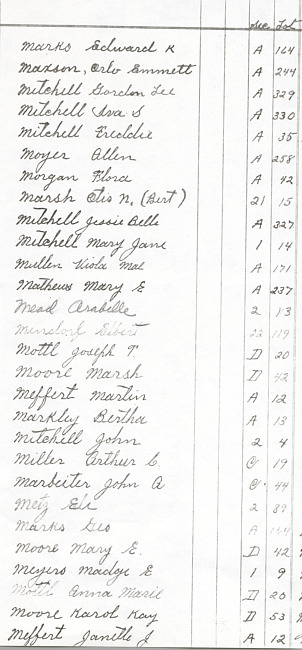 Sec Lot
Marks Edward K A 164
Maxson, Orlo Emmett A 244
Mitchell Gordon Lee A 329
Mitchell Iva S A 330
Mitchell Freddie A 35
Moyer Allen A 258
Morgan Flora A 42
Marsh Otis N. (Bert) 21 15
Mitchell Jessie Belle A 327
Mitchell Mary Jane 1 14
Mullen Viola Mae A 171
Mathews Mary E A 237
Mead Arabelle 2 13
Elbert 22 119
Mottl Joseph T. D 20
Moore Marsh D 42
Meffert Martin A 12
Markley Bertha A 13
Mitchell John 2 4
Miller Arthur C. C 19
Marbeiter John A C 44
Metz Eli 2 89
Marks Geo A 164
Moore Mary E. D 42
Meyers Madge E 1 9
Mottl Anna Marie D 20
Moore Karol Kay D 53
Meffert Janette J A 12